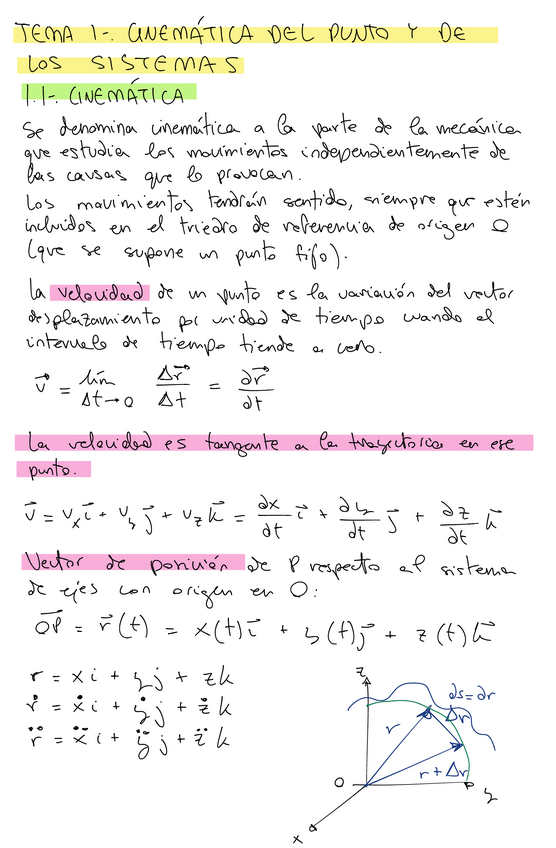 TEMA 1-. CINEMÁTICA DEL PUNTO Y DE
LOS SISTEMAS
1.1-. CINEMÁTICA
Se denomina cinemática a la parte de la mecánica
que estudia los movimientos independientemente de
las causas que lo provocan.
Los movimientos tendrán sentido, siempre que estén
incluidos en el triedro de referencia de origen O
(que se supone un punto fijo).
La velocidad de un punto es la variación del vector
desplazamiento por unidad de tiempo cuando el
intervalo de tiempo tiende a cero.
v⃗ = lím Δt→0 Δr⃗/Δt = ∂r⃗/∂t
La velocidad es tangente a la trayectoria en ese
punto.
v⃗ = vₓ i⃗ + v_y j⃗ + v_z k⃗ = ∂x/∂t i⃗ + ∂y/∂t j⃗ + ∂z/∂t k⃗
Vector de posición de P respecto al sistema
de ejes con origen en O:
OP⃗ = r⃗(t) = x(t)i⃗ + y(t)j⃗ + z(t)k⃗
r = xi + yj + zk
ṙ = ẋi + ẏj + żk
r̈ = ẍi + ÿj + z̈k
z
∂s=∂r
Δr
r
r+Δr
O
y
x